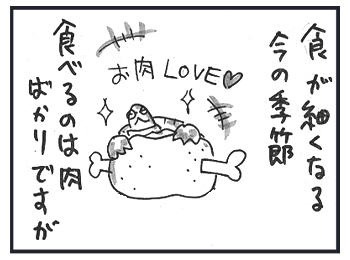 食が細くなる
今の季節
お肉 LOVE♡
食べるのは肉
ばかりですが